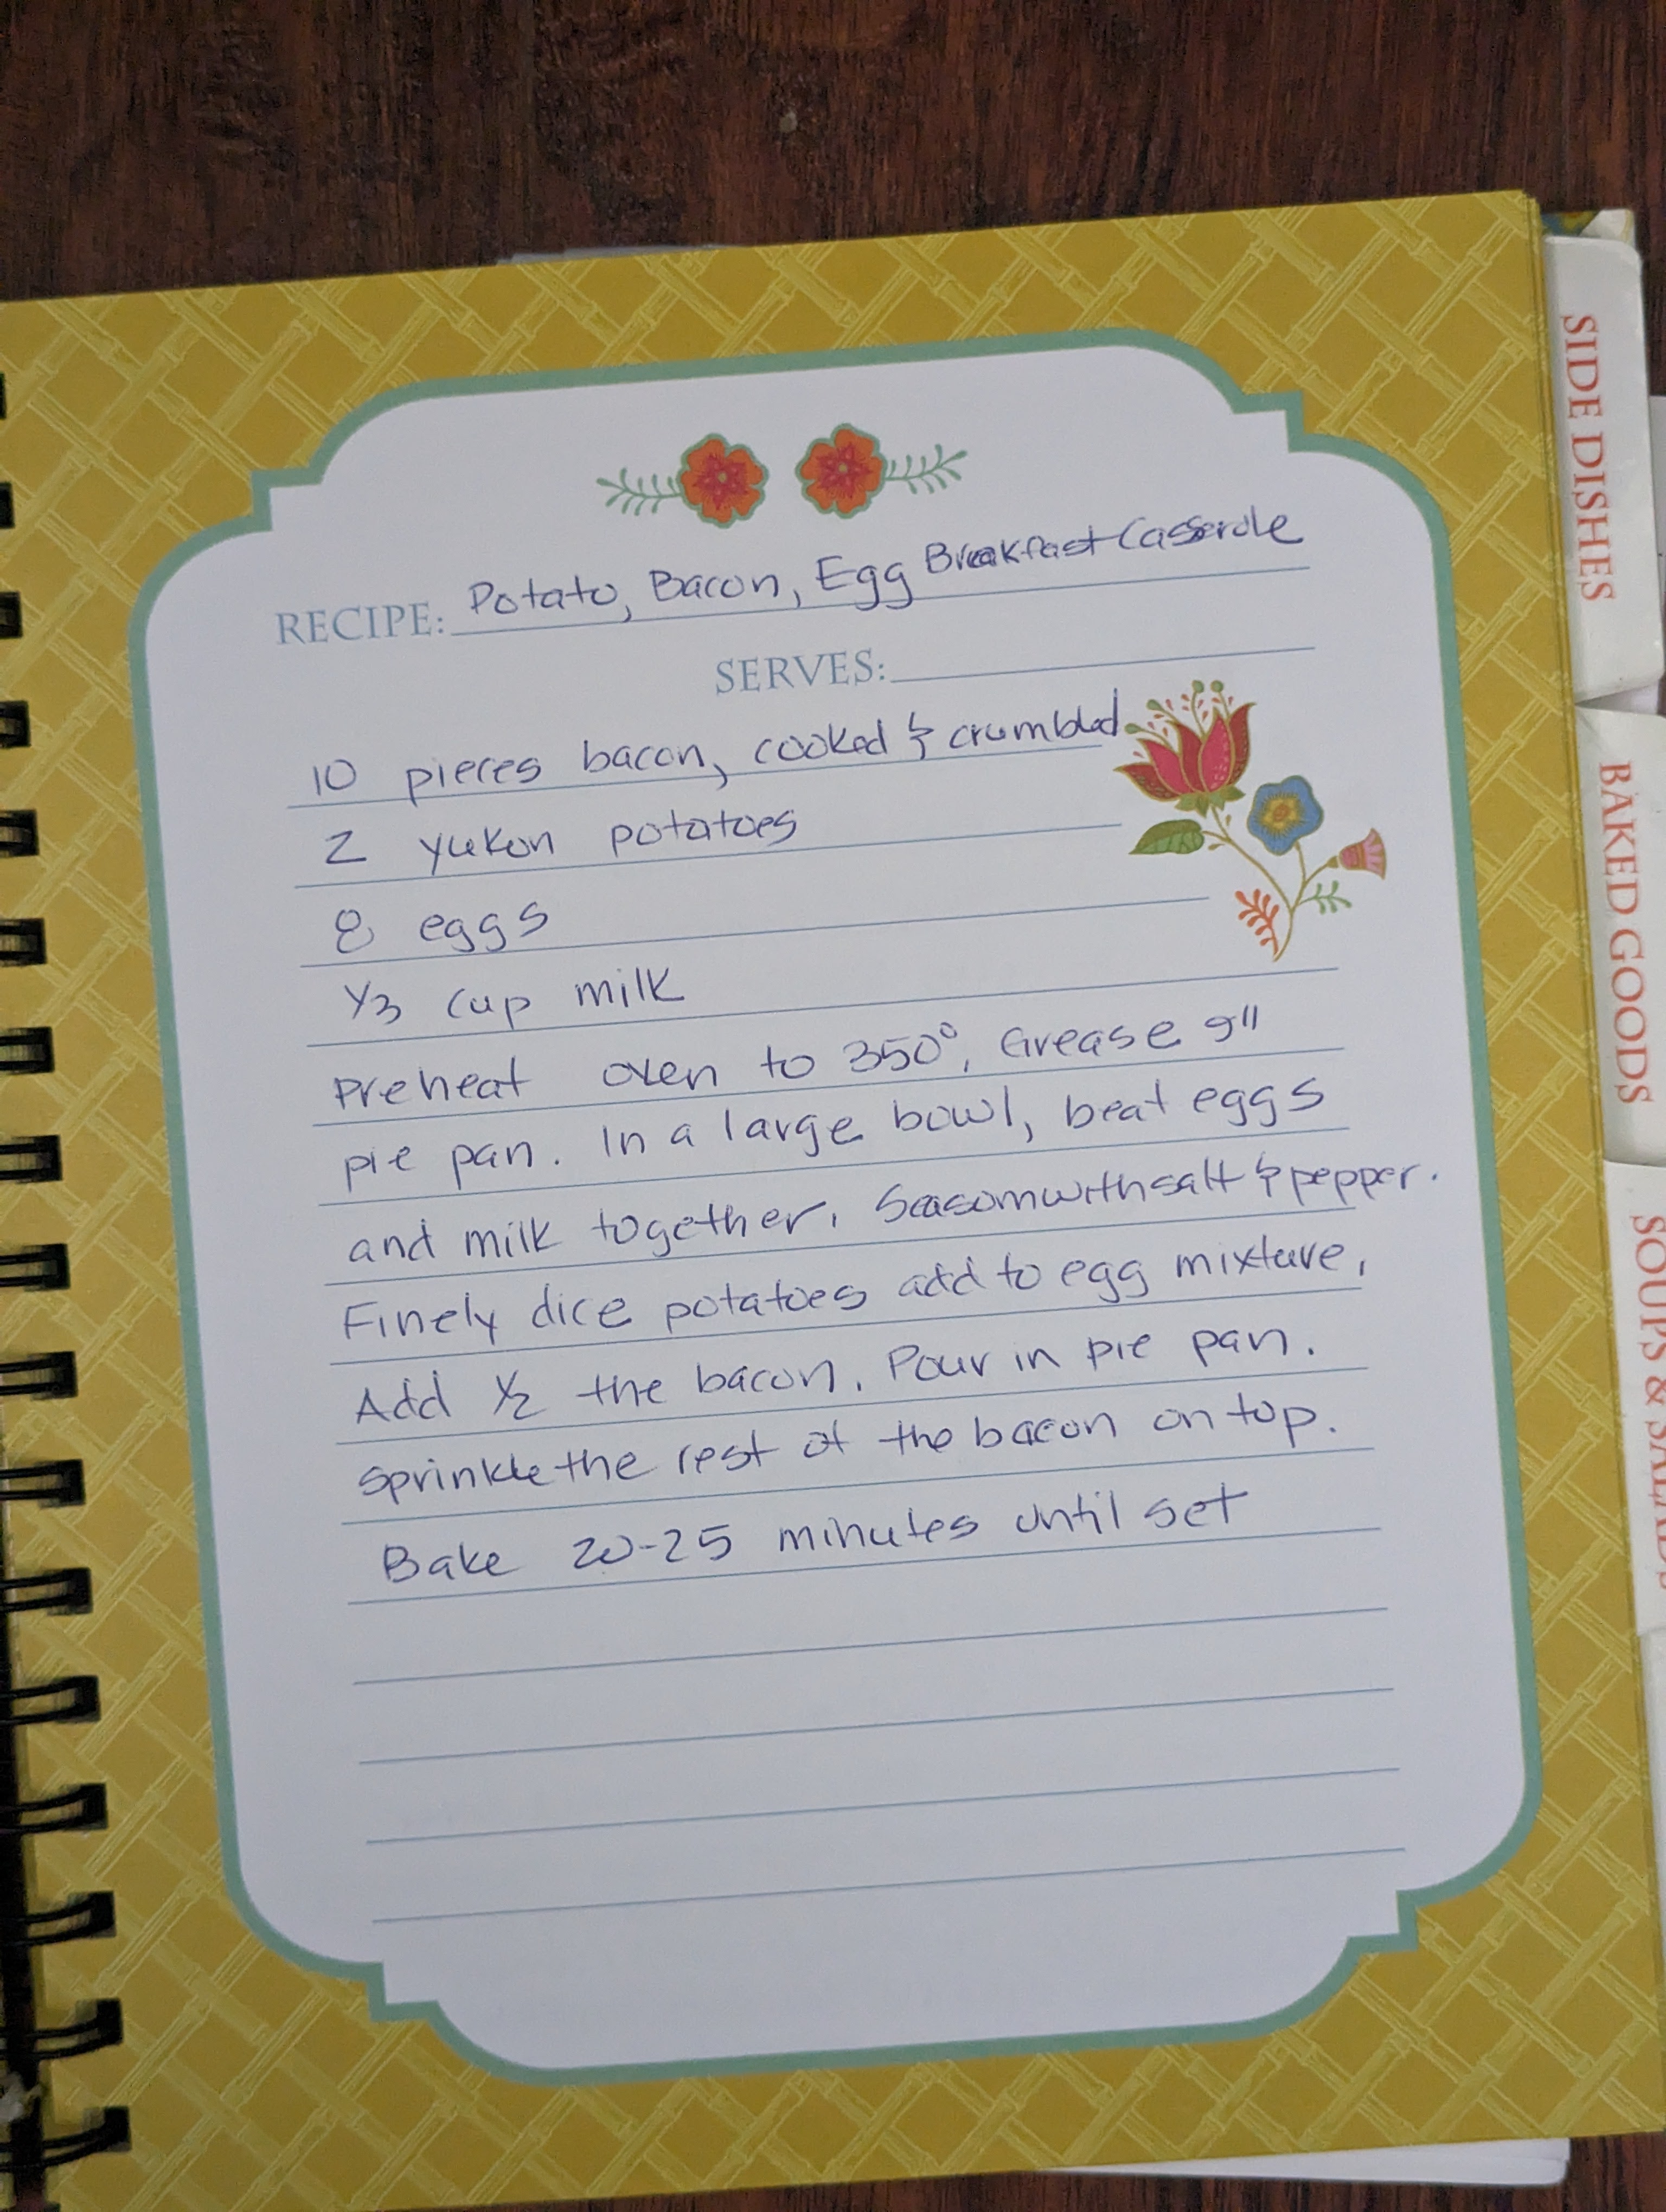 RECIPE: Potato, Bacon, Egg Breakfast Casserole
SERVES:
10 pieces bacon, cooked & crumbled
2 yukon potatoes
8 eggs
1/3 cup milk
Preheat oven to 350°, Grease 9"
pie pan. In a large bowl, beat eggs
and milk together. Season with salt & pepper.
Finely dice potatoes add to egg mixture.
Add 1/2 the bacon. Pour in pie pan.
Sprinkle the rest of the bacon on top.
Bake 20-25 minutes until set
SIDE DISHES
BAKED GOODS
SOUPS & SALADS